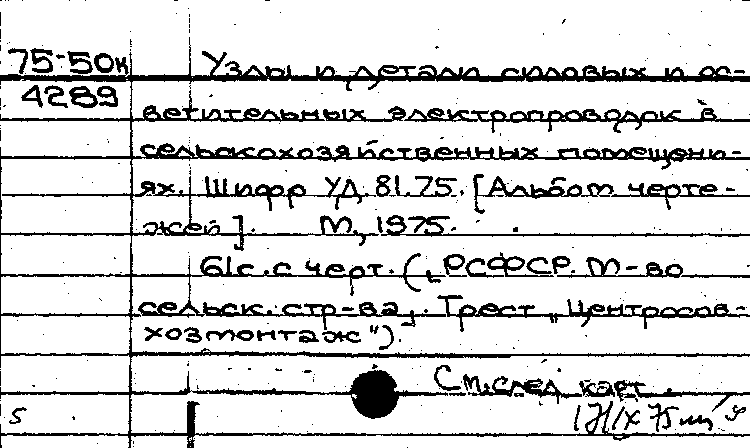 75-50к Узлы и детали силовых и ос-
4289
ветительных электропроводок в
сельскохозяйственных помещени-
ях. Шифр УД.81.75. [Альбом черте-
жей]. М., 1975.
61с. с черт. (РСФСР. М-во
сельск. стр-ва. Трест „Центросов-
хозмонтаж").
См. след. карт.
5